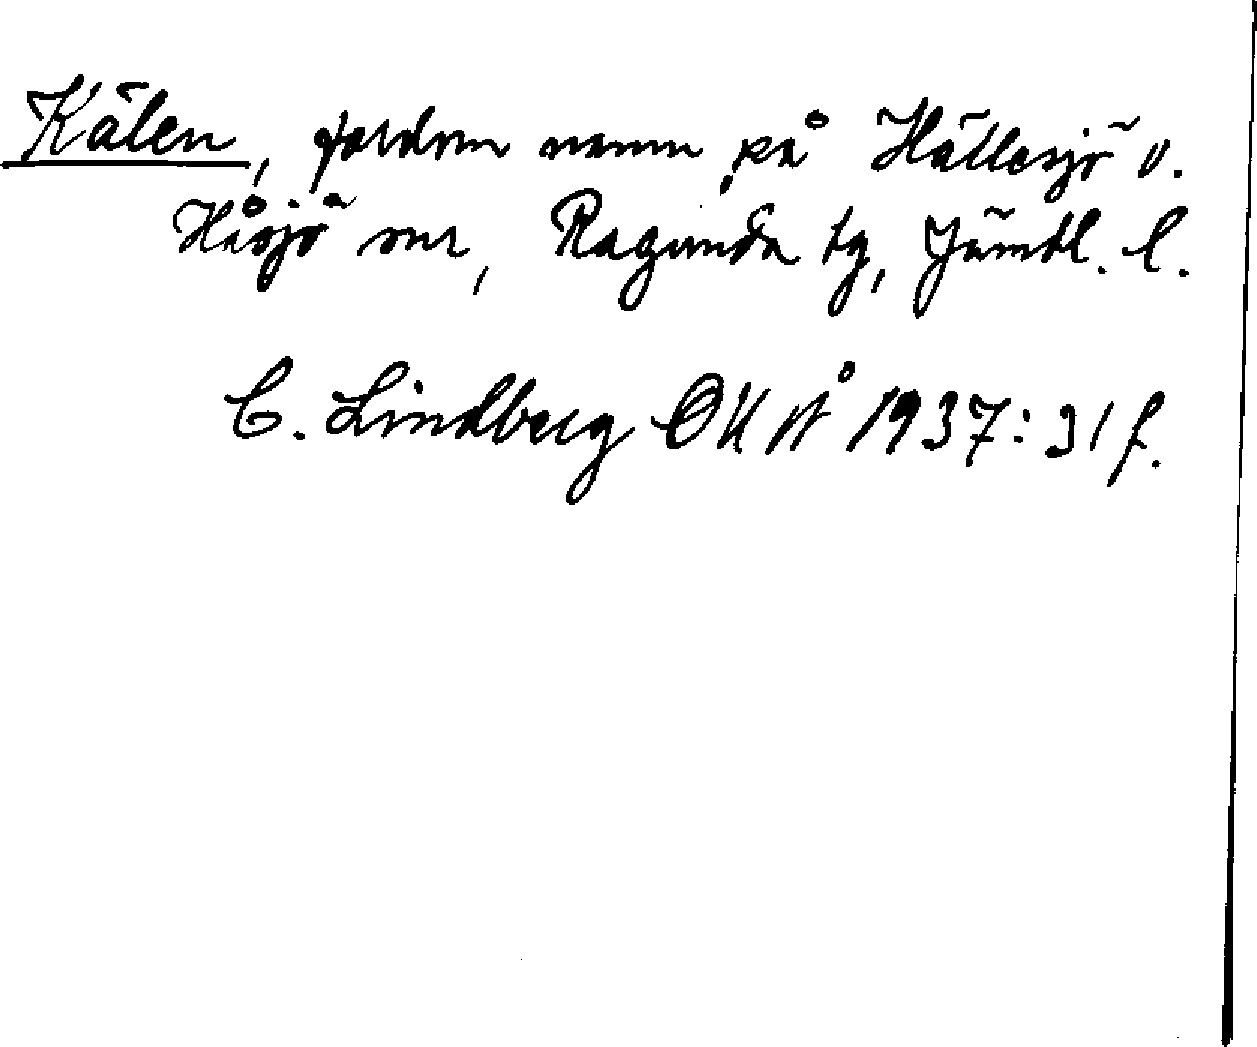 Kälen, fordom namn på Hällesjö o.
Håsjö snr, Ragunda tg, Jämtl. l.
C. Lindberg OUÅ 1937: 31 f.